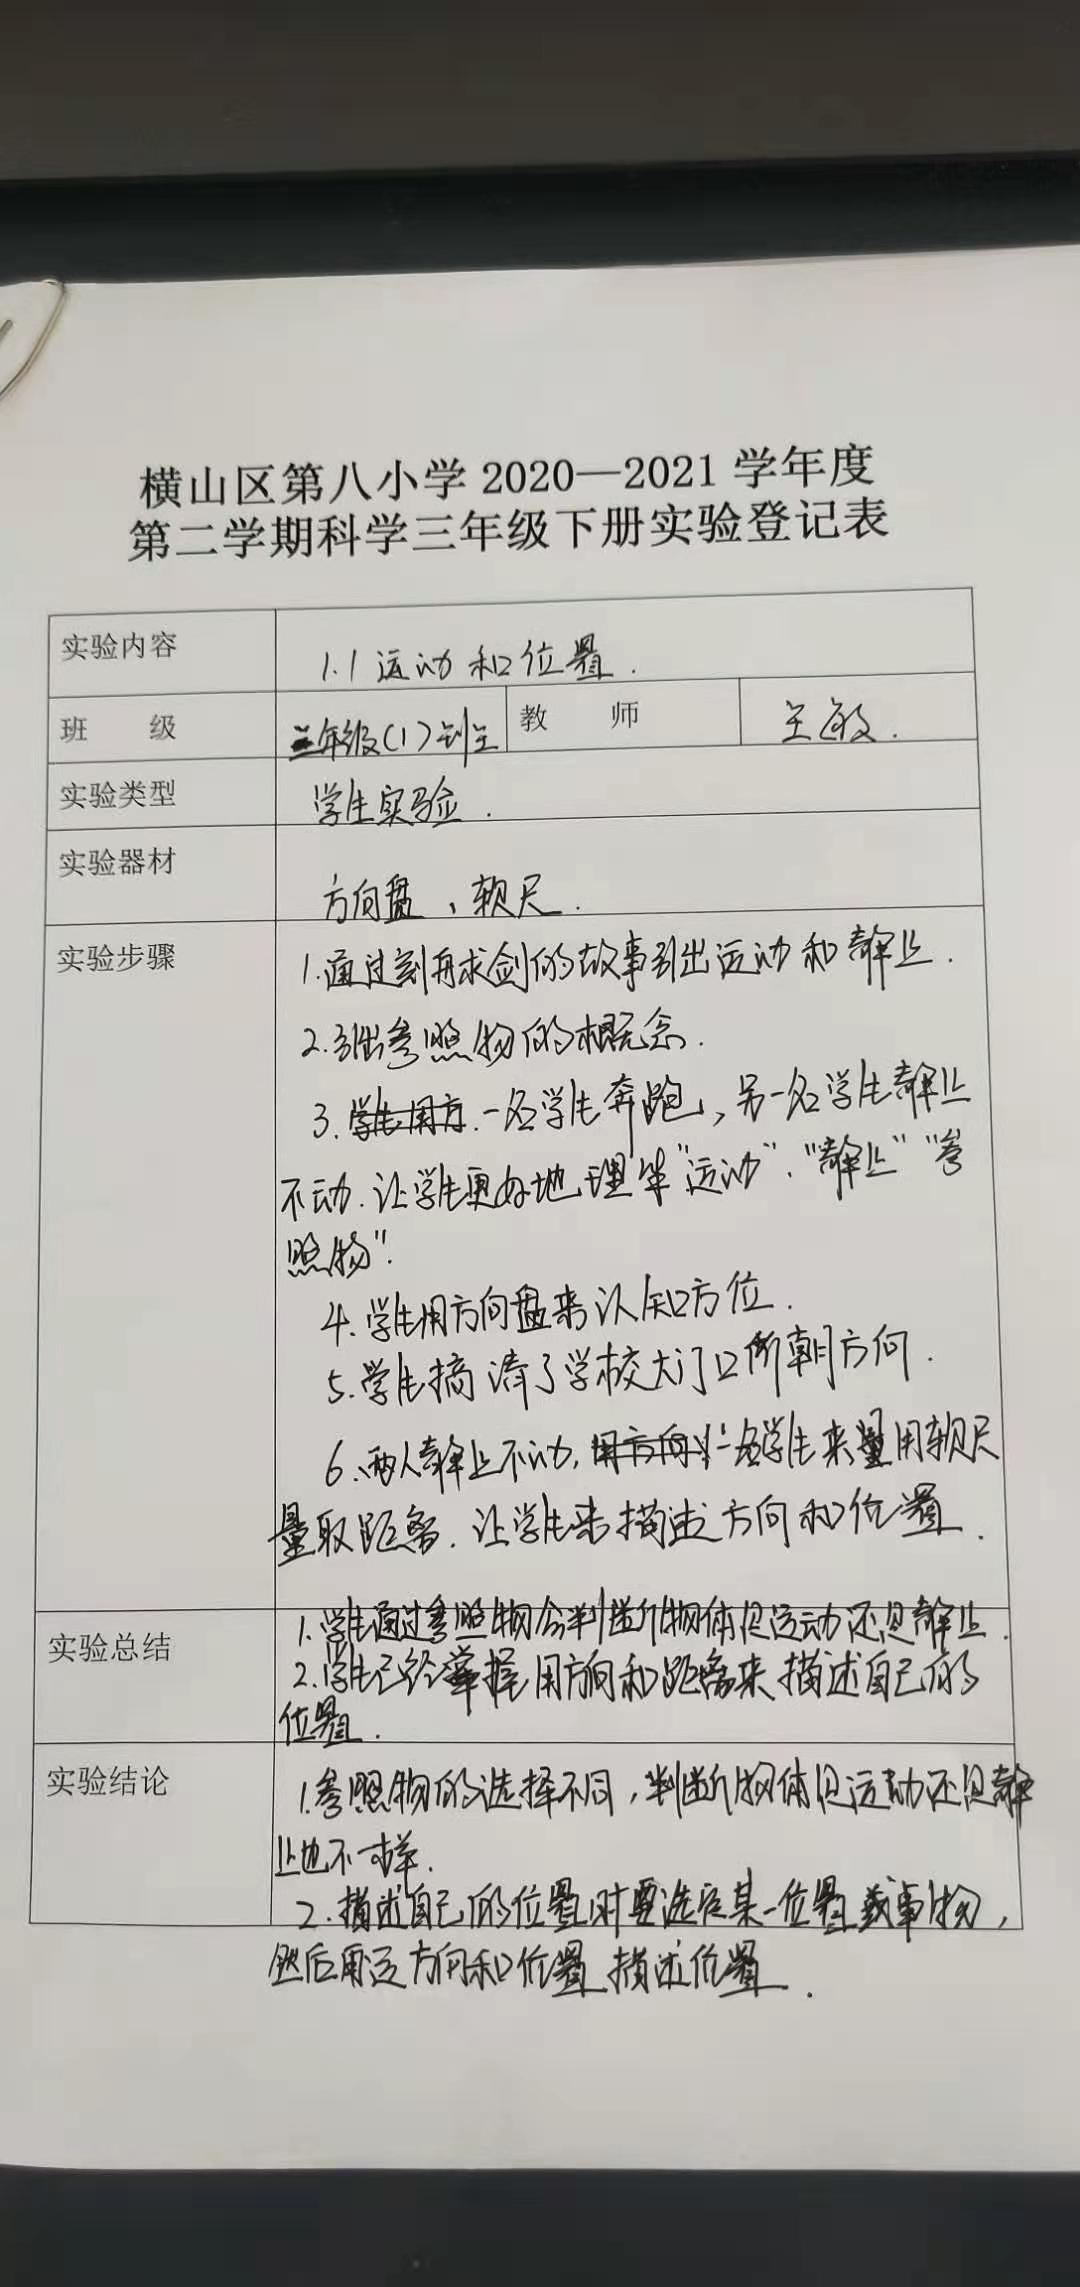 横山区第八小学 2020—2021 学年度
第二学期科学三年级下册实验登记表
实验内容 1.1 运动和位置.
班 级 三年级(1)班 教 师 王敏.
实验类型 学生实验.
实验器材 方向盘、软尺.
实验步骤 1.通过刻舟求剑的故事引出运动和静止.
2.引出参照物的概念.
3.学生用方.一名学生奔跑,另一名学生静止
不动.让学生更好地理解"运动"."静止""参
照物".
4.学生用方向盘来认知方位.
5.学生搞清了学校大门口所朝方向.
6.两人静止不动,用方向 一名学生来量用软尺
量取距离.让学生来描述方向和位置.
实验总结 1.学生通过参照物会判断物体是运动还是静止.
2.学生已经掌握用方向和距离来描述自己的
位置.
实验结论 1.参照物的选择不同,判断物体是运动还是静
止也不一样.
2.描述自己的位置时要选定某一位置或事物,
然后用这方向和位置描述位置.